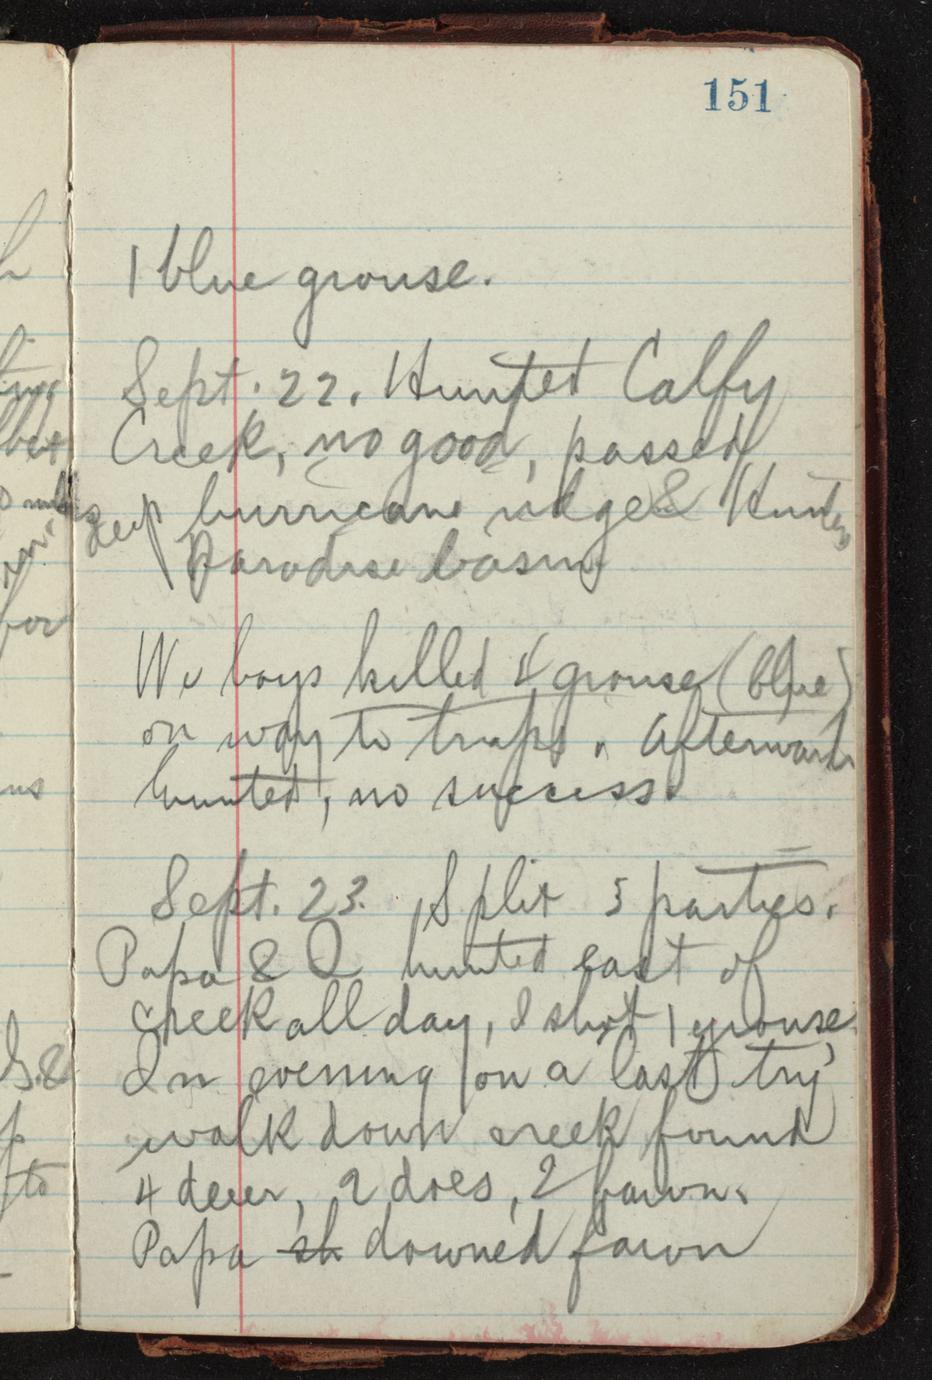 151
1 blue grouse.
Sept. 22. Hunted Calfy
Creek, no good, passed
deep hurricane ridge & Hunted
Paradise basin
We boys killed 4 grouse (blue)
on way to traps. Afterwards
hunted, no success.
Sept. 23. Split 3 parties.
Papa & I hunted east of
creek all day, I shot 1 grouse
In evening on a last try
walk down creek found
4 deer, 2 does, 2 fawn.
Papa sh downed fawn